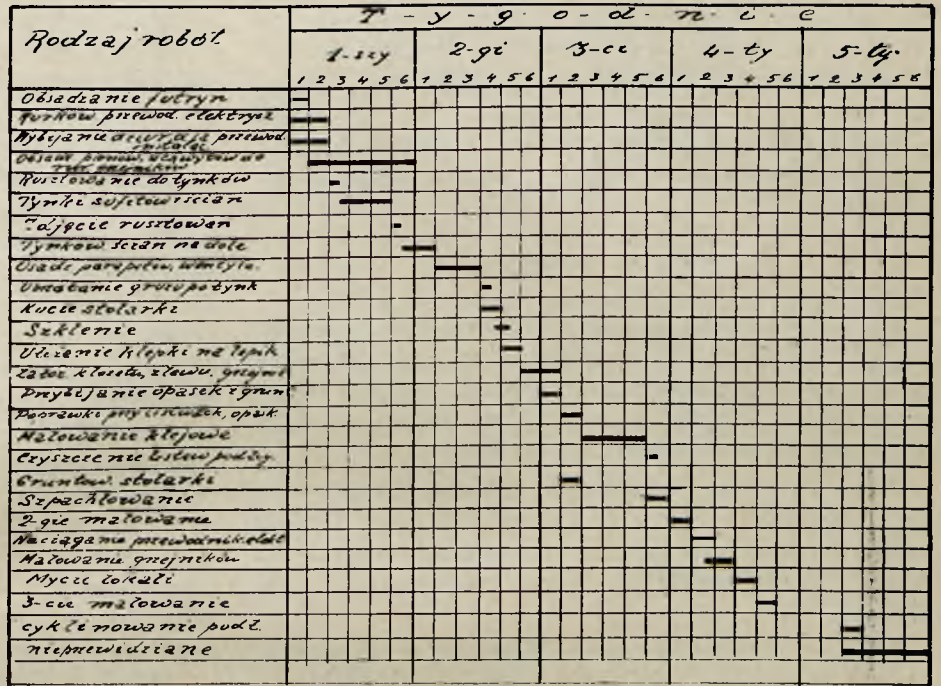 T-y-g-o-d-n-i-e
Rodzaj robót
1-szy 2-gi 3-ci 4-ty 5-ty
1 2 3 4 5 6 1 2 3 4 5 6 1 2 3 4 5 6 1 2 3 4 5 6 1 2 3 4 5 6
Obsadzanie futryn
przewod. elektrycz
Wybijanie dziur dla przewod.
instalac
Obsadz. pionów,
Rusztowanie do tynków
Tynki sufitów i ścian
Zdjęcie rusztowań
Tynkow. ścian na dole
Osadz. parapetów,
Umiatanie gruzu po tynk
Kucie stolarki
Szklenie
Ułożenie klepki na lepik
klozetu, zlewu, grzejni
Przybijanie opasek i grunt
Poprawki przy opask.
Malowanie klejowe
Czyszczenie listew podłog.
Gruntow. stolarki
Szpachlowanie
2-gie malowanie
Naciąganie przewodnik. elekt
Malowanie grzejników
Mycie lokali
3-cie malowanie
cyklinowanie podł.
nieprzewidziane